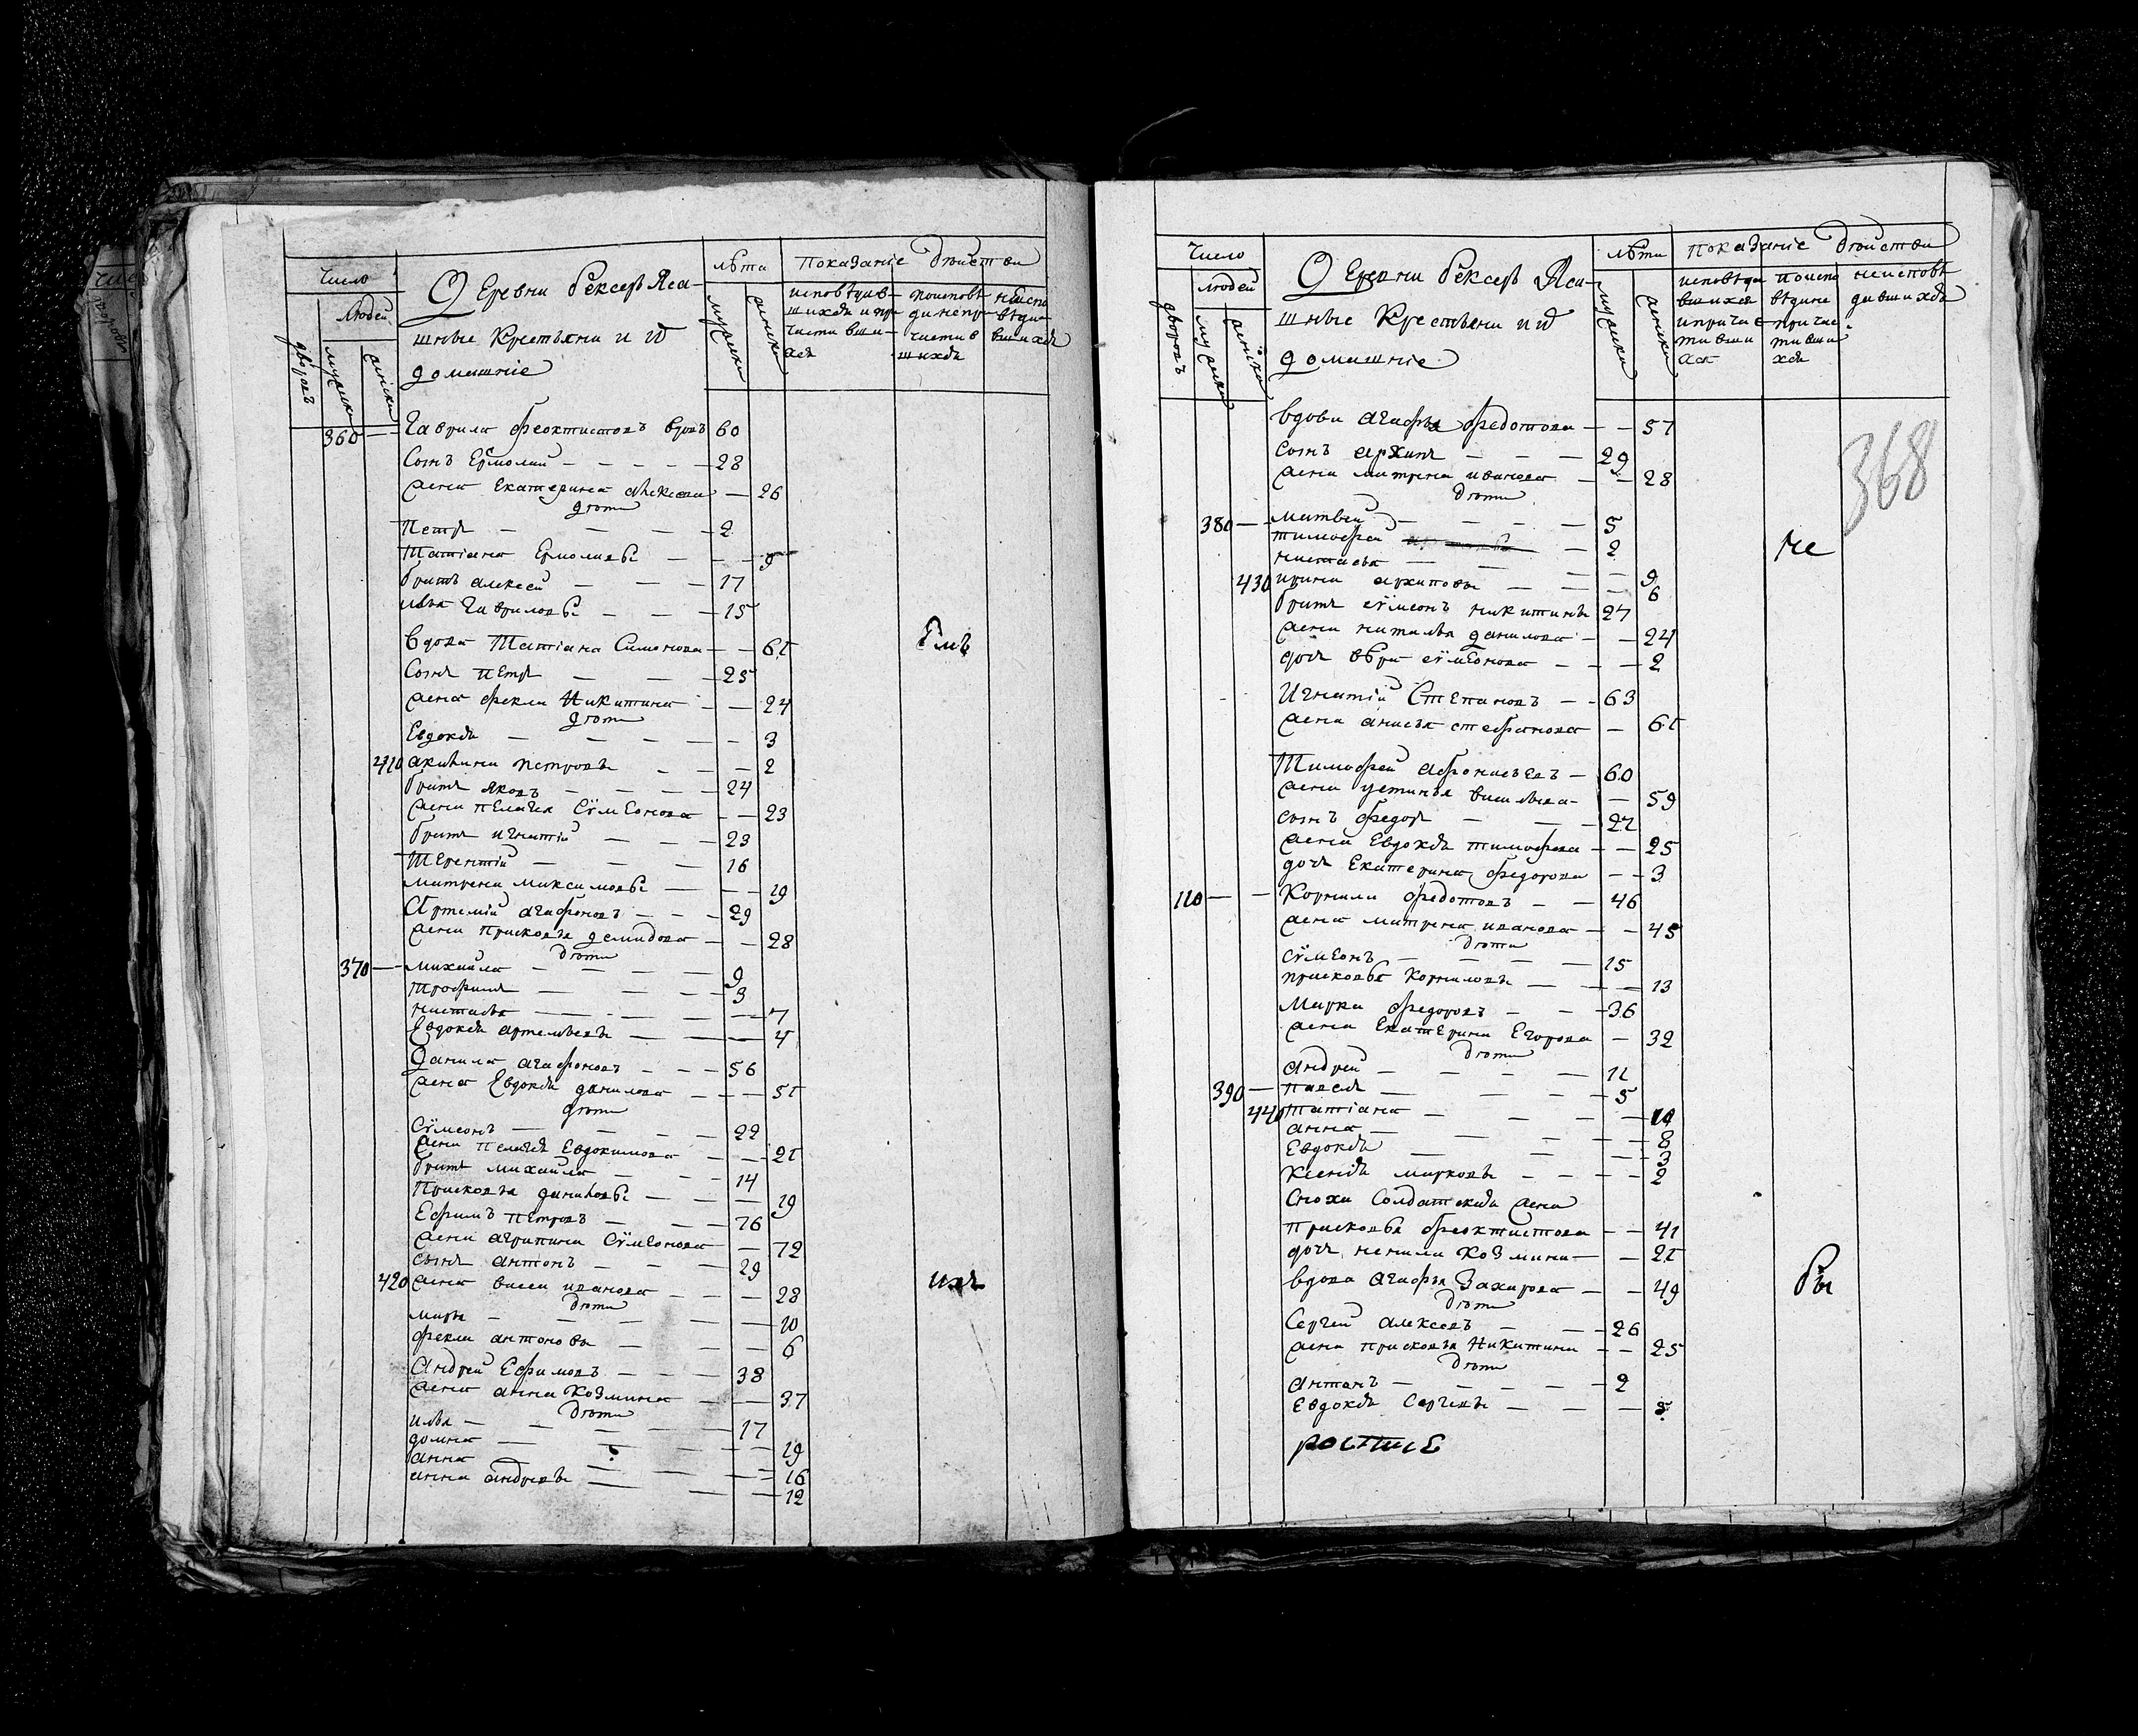 Число
Людей
дворовъ
мужска
женска
Деревни Бексеръ Яса-
шные Крестьяни и ихъ
домашніе
лѣта
мужска
женска
Показаніе действи
исповѣдав-
шихся и при
частивши-
хся
поисповѣ
дине при
частив
шихся
неиспо
вѣдав
вшихся
360 Гаврила феоктистовъ вдовъ 60
Сынъ Ермолай 28
жена Екатерина Алексеева 26
дѣти
Петръ 2
Татіана Ермолаевы 9
братъ алексей 17
иванъ Гавриловы 15
вдова Татіана Симонова 61
Сынъ Петръ 25
жена фекла Никитина 24
дѣти
Евдокія 3
410 акилина петровы 2
братъ яковъ 24
жена пелагея Сѵмеонова 23
братъ игнатій 23
Терентій 16
матрена максимовы 19
Артемій агафоновъ 29
жена Прасковья демидова 28
дѣти
370 михайла 9
трофимъ 3
настасья 7
Евдокія артемьевы 4
Данила агафоновъ 56
жена Евдокія данилова 51
дѣти
Сѵмеонъ 22
жена пелагея Евдокимова 21
братъ михайла 14
Прасковья даниловы 19
Ефимъ петровъ 76
жена агрипина Сѵмеонова 72
сынъ антонъ 29
420 жена васса иванова 28
дѣти
марья 10
фекла антоновы 6
Андрей Ефимовъ 38
жена анна козмина 37
дѣти
илья 17
домна 19
анна 16
анна андреевы 12
Число
Людей
дворовъ
мужска
женска
Деревни Бексеръ Яса-
шные Крестьяни и ихъ
домашніе
лѣта
мужска
женска
показаніе действи
исповѣда
вшихся
и прича
тивши
хся
поиспо
вѣдине
причас
тивши
хся
неисповѣ
давшихся
368
вдова Агафья федотова 57
сынъ архипъ 29
жена матрена иванова 28
дѣти
380 матвей 5
тимофей 2
не
настасья 9
430 ирина архиповы 6
братъ сѵмеонъ никитинъ 27
жена наталья данилова 24
дочь вѣра сѵмеонова 2
Игнатій Степановъ 63
жена анисья стефанова 61
Тимофей афонасьевъ 60
жена устинья васильева 59
сынъ федоръ 22
жена Евдокія тимофеева 25
дочь Екатерина федорова 3
110 Корнила федотовъ 46
жена матрена иванова 45
дѣти
сѵмеонъ 15
прасковья корниловы 13
Марка федоровъ 36
жена Екатерина Егорова 32
дѣти
андрей 11
390 павелъ 5
440 татіана 10
анна 8
Евдокія 3
ксенія марковы 2
Сноха Солдатская жена
прасковья феоктистова 41
дочь ненила козмина 21
вдова Агафья Захарова 49
бы
дѣти
Сергей алексеевъ 26
жена прасковья Никитина 25
дѣти
антонъ 2
Евдокія Сергеевы 5
росписе